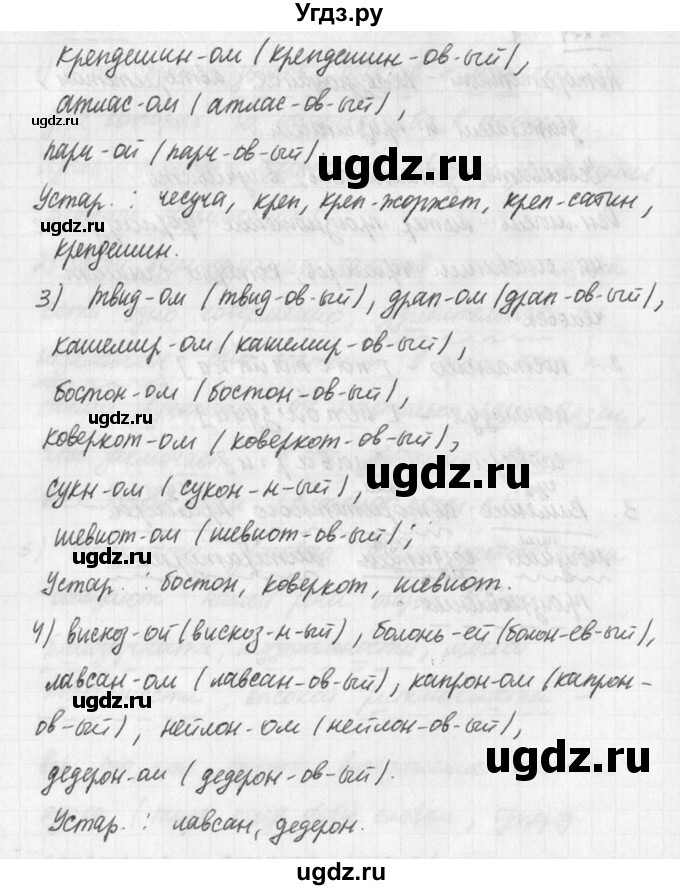 Угдз.ру
крепдешин-ом (крепдешин-ов-ый),
атлас-ом (атлас-ов-ый),
ugdz.ru
парч-ой (парч-ов-ый).
ugdz.ru
Устар. : чесуча, креп, креп-жоржет, креп-сатин,
ugdz.ru
крепдешин.
3) твид-ом (твид-ов-ый), драп-ом (драп-ов-ый),
кашемир-ом (кашемир-ов-ый),
бостон-ом (бостон-ов-ый),
ugdz.ru
коверкот-ом (коверкот-ов-ый),
ugdz.ru
сукн-ом (сукон-н-ый),
шевиот-ом (шевиот-ов-ый);
ugdz.ru
Устар. : бостон, коверкот, шевиот.
4) вискоз-ой (вискоз-н-ый), болонь-ей (болон-ев-ый),
лавсан-ом (лавсан-ов-ый), капрон-ом (капрон-
ов-ый), нейлон-ом (нейлон-ов-ый),
ugdz.ru
дедерон-ом (дедерон-ов-ый).
ugdz.ru
Устар. : лавсан, дедерон.